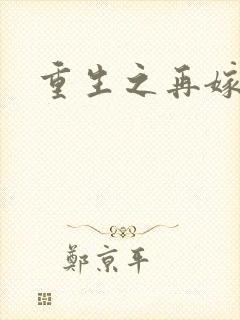 重生之再嫁
鄭京平